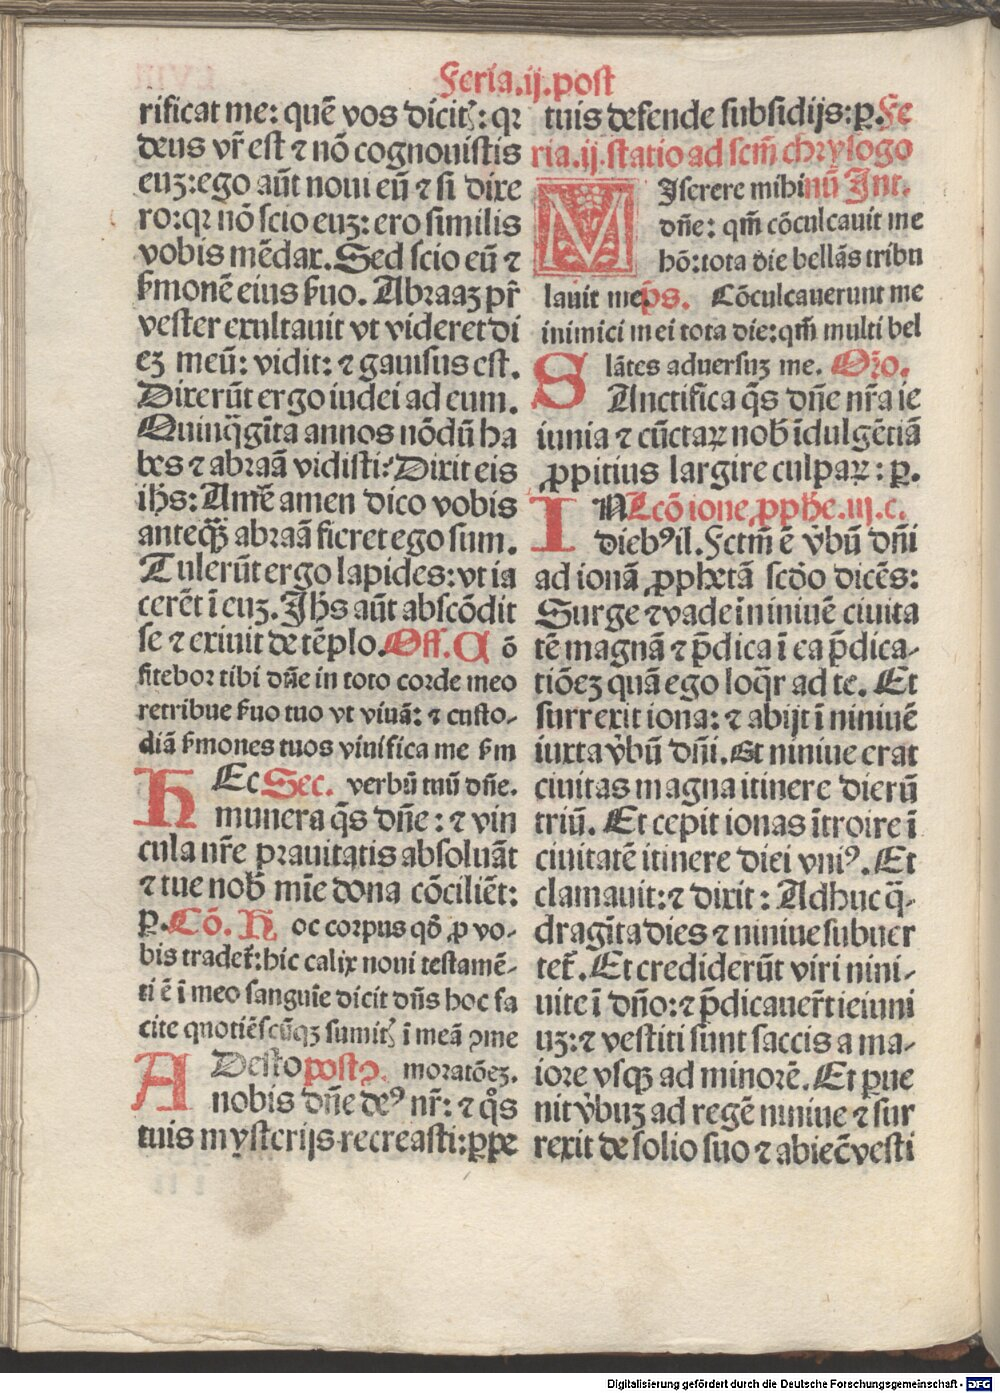 Feria.ij.post
rificat me: quē vos dicitꝭ: qꝛ
deus vr̄ est ⁊ nō cognouistis
euꝫ: ego aūt noui eū ⁊ si dixe
ro: qꝛ nō scio euꝫ: ero similis
vobis mēdax. Sed scio eū ⁊
ẜmonē eius ẜuo. Abraaꝫ pr̄
vester exultauit vt videret di
eꝫ meū: vidit: ⁊ gauisus est.
Dixerūt ergo iudei ad eum.
Quinq̄gīta annos nōdū ha
bes ⁊ abraā vidisti? Dixit eis
ihs̄: Amē amen dico vobis
anteqꝫ̄ abraā fieret ego sum.
Tulerūt ergo lapides: vt ia
cerēt ī euꝫ. Jhs̄ aūt abscōdit
se ⁊ exiuit de tēplo. Off. C ō
fitebor tibi dn̄e in toto corde meo
retribue ẜuo tuo vt viuā: ⁊ custo-
diā ẜmones tuos viuifica me ẜm
HEc Sec. verbū tuū dn̄e.
munera q̄s dn̄e: ⁊ vin
cula nr̄e prauitatis absoluāt
⁊ tue nob̄ mīe dona cōciliēt:
p. Cō. H oc corpus qd̄ ꝓ vo-
bis tradet᷑: hic calix noui testamē-
ti ē ī meo sanguīe dicit dn̄s hoc fa
cite quotiēscūqꝫ sumitꝭ ī meā ꝯme
ADesto postꝯ. moratōeꝫ.
nobis dn̄e deꝰ nr̄: ⁊ q̊s
tuis mysterijs recreasti: ꝑpe
tuis defende subsidijs: p. Fe
ria.ij. statio ad scm̄ chrysogo
MIserere mihi nū Int.
dn̄e: qm̄ cōculcauit me
hō: tota die bellās tribu
lauit me. ps̄. Cōculcauerunt me
inimici mei tota die: qm̄ multi bel
lātes aduersuꝫ me. Oro.
SAnctifica q̄s dn̄e nr̄a ie
iunia ⁊ cūctaꝝ nob̄ īdulgētiā
ꝓpitius largire culpaꝝ: p.
IN Lcō ione ꝓphe. iij. c.
diebꝰ il. Fctm̄ ē v̄bū dn̄i
ad ionā ꝓphetā scdo dicēs:
Surge ⁊ vade in niniuē ciuita
tē magnā ⁊ p̄dica ī ea p̄dica-
tiōeꝫ quā ego loq̄r ad te. Et
surrexit iona: ⁊ abijt ī niniuē
iuxta v̄bū dn̄i. Et niniue erat
ciuitas magna itinere dierū
triū. Et cepit ionas ītroire ī
ciuitatē itinere diei vniꝰ. Et
clamauit: ⁊ dixit: Adhuc q̄-
dragīta dies ⁊ niniue subuer
tet᷑. Et crediderūt viri nini-
uite ī dn̄o: ⁊ p̄dicauer̄t ieiuni
uꝫ: ⁊ vestiti sunt saccis a ma-
iore vsqꝫ ad minorē. Et ꝑue
nit v̄buꝫ ad regē niniue ⁊ sur
rexit de solio suo ⁊ abiec̄ vesti
Digitalisierung gefördert durch die Deutsche Forschungsgemeinschaft - DFG